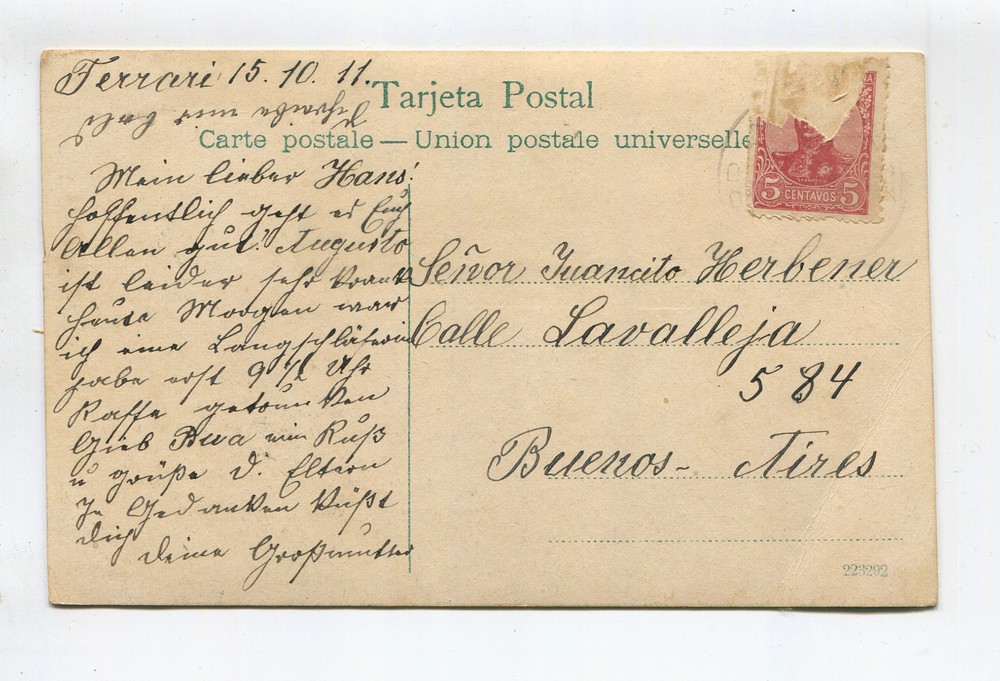 Ferrari 15. 10. 11.
Tarjeta Postal
Carte postale — Union postale universelle
Mein lieber Hans!
hoffentlich geht es Euch
Allen gut! Augusto
ist leider sehr krank
heute Morgen war
ich eine Langschläferin
habe erst 9 1/2 Uhr
Kaffe getrunken
Gieb Bua ein Kuß
u grüße d. Eltern
In Gedanken küßt
Dich
deine Großmutter
5 CENTAVOS 5
Señor Juancito Herbener
Calle Lavalleja
584
Buenos-Aires
223292